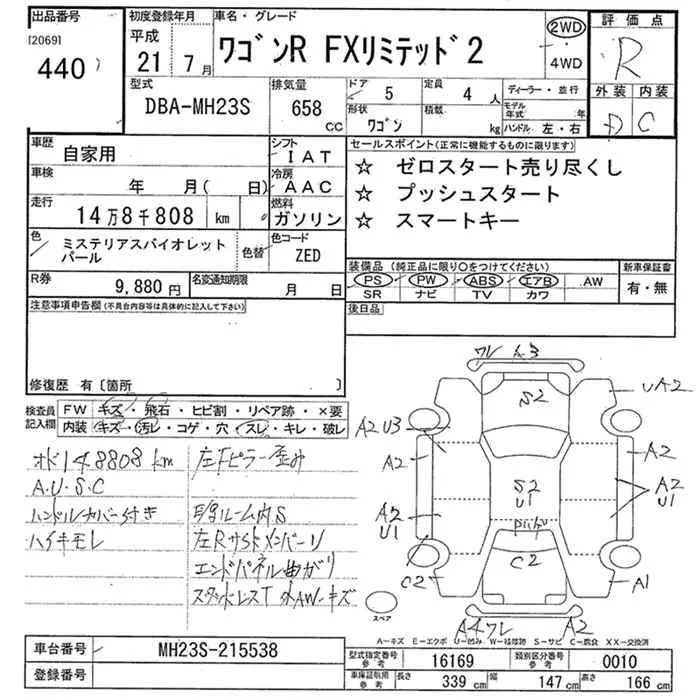 出品番号
[2069]
440
初度登録年月
平成
21 7月
車名・グレード
ワゴンR FXリミテッド2
2WD
・
4WD
評価点
R
外装 内装
D C
型式
DBA-MH23S
排気量
658 cc
ドア
5
定員
4 人
形状
ワゴン
積載
kg
ディーラー・並行
モデル年式 年
ハンドル 左・右
車歴
自家用
シフト
IAT
車検
年 月( 日)
冷房
AAC
走行
14万8千808 km
燃料
ガソリン
色
ミステリアスバイオレット
パール
色替
色コード
ZED
R券
9,880 円
名変通知期限
月 日
セールスポイント(正常に機能するものに限ります)
☆ ゼロスタート売り尽くし
☆ プッシュスタート
☆ スマートキー
装備品 (純正品に限り○をつけてください)
PS PW ABS エアB AW
SR ナビ TV カワ
新車保証書
有・無
後日品
注意事項申告欄(不具合内容等は具体的に記入して下さい)
修復歴 有〔箇所 〕
検査員
記入欄
FW キズ・飛石・ヒビ割・リペア跡・×要
内装 キズ・汚レ・コゲ・穴・スレ・キレ・破レ
オド148808km
A.U.S.C
ハンドルカバー付き
ハイキモレ
左Fピラー歪み
ルーム内S
左Rサイドメンバー
エンドパネル曲がり
スタッドレスT 外AWーキズ
ワレ A3
UA2
S2
A2 U3
A2
A2
S2
U1
A2
U1
A2
U1
C2
C2
A1
A4ワレ A2
スペア
A―キズ E―エクボ U―凹み W―補修跡 S―サビ C―腐食 XX―交換済
車台番号
MH23S-215538
登録番号
型式指定番号
参考
16169
類別区分番号
参考
0010
車庫証明用
参考
長さ
339 cm
幅
147 cm
高さ
166 cm